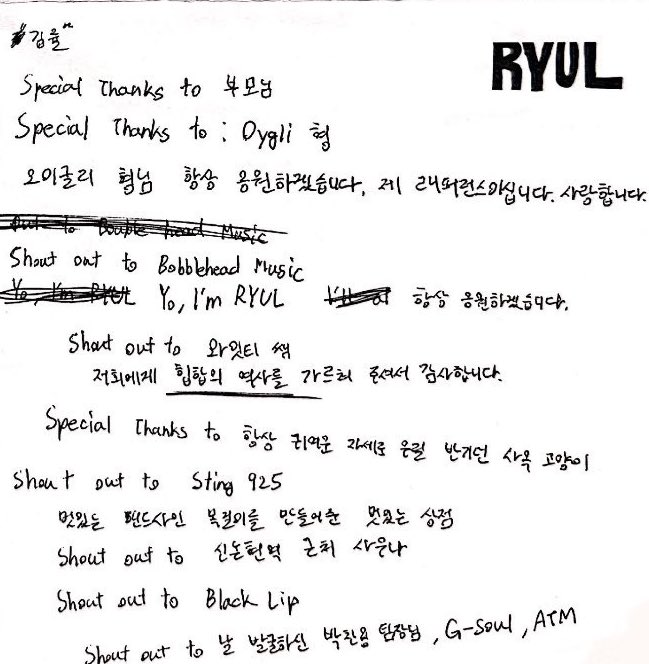 "김율"
RYUL
Special Thanks to 부모님
Special Thanks to : Oygli 형
오이글리 형님 항상 응원하겠습니다, 제 래퍼런스이십니다. 사랑합니다.
out to Double head Music
Shout out to Bobblehead Music
Yo, I'm RYUL Yo, I'm RYUL 항상 응원하겠습니다.
Shout out to 와잇티 쌤
저희에게 힙합의 역사를 가르쳐 주셔서 감사합니다.
Special Thanks to 항상 귀여운 자세로 우릴 반기던 사옥 고양이
Shout out to Sting 925
멋있는 밴드사인 목걸이를 만들어준 멋있는 상점
Shout out to 신논현역 근처 사우나
Shout out to Black Lip
Shout out to 날 발굴하신 박진용 팀장님, G-Soul, ATM